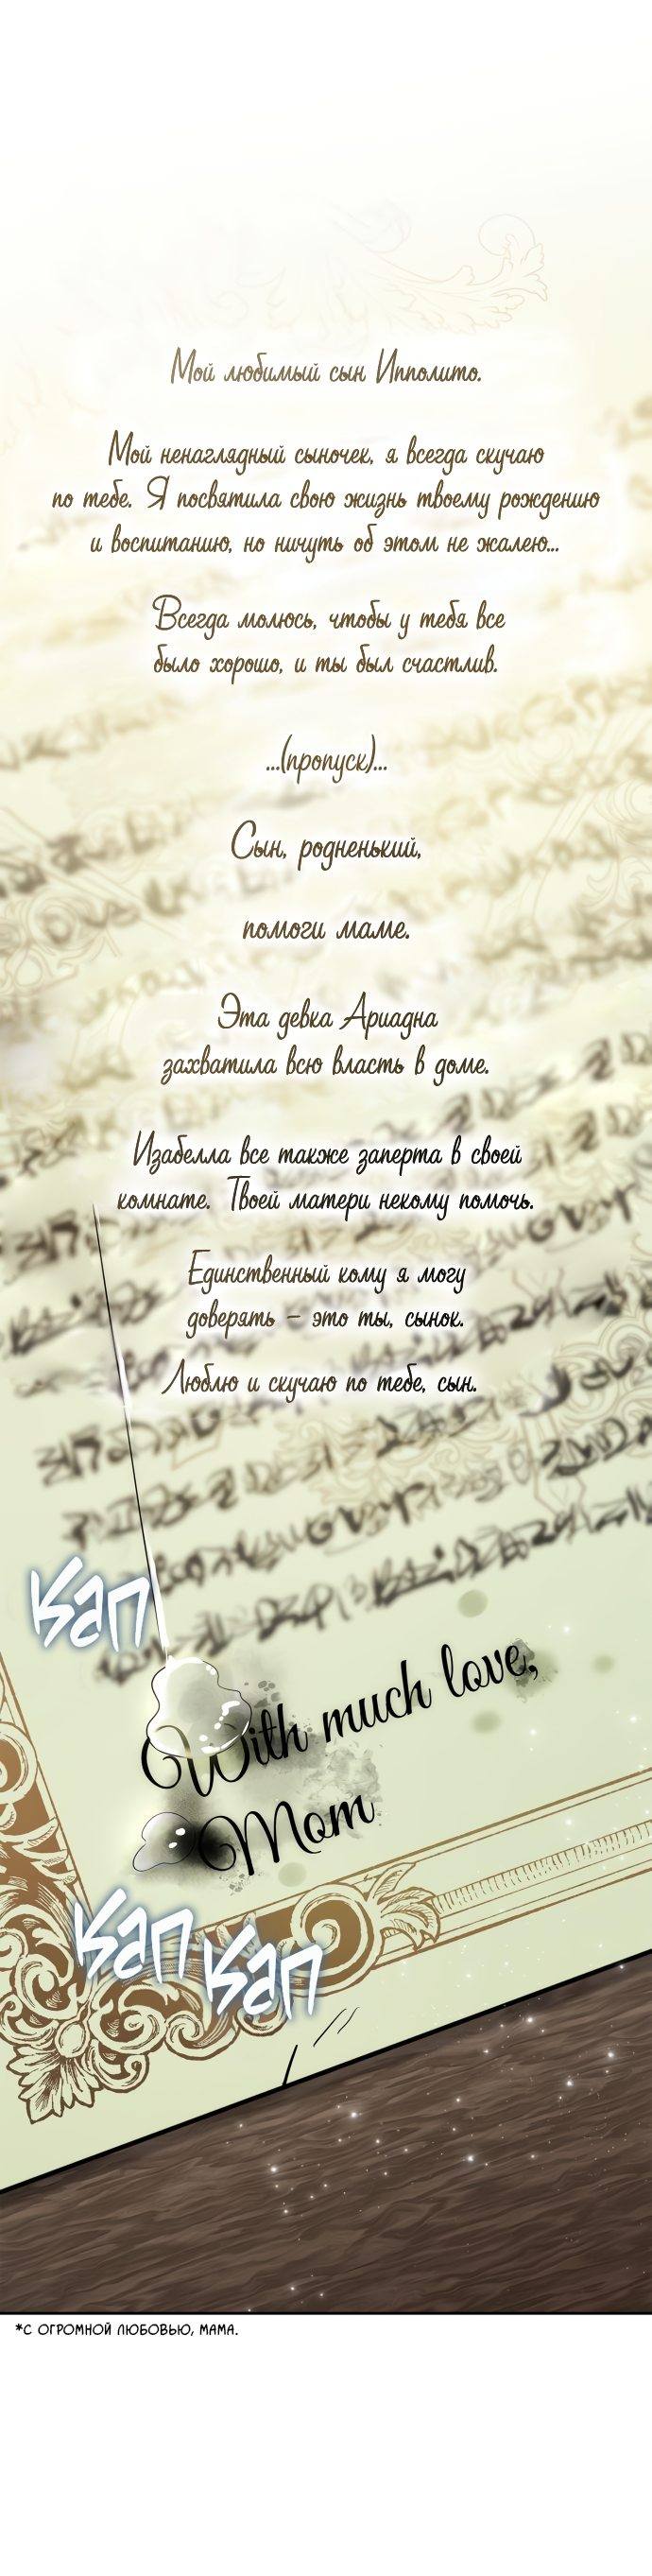 Мой любимый сын Ипполито.
Мой ненаглядный сыночек, я всегда скучаю
по тебе. Я посвятила свою жизнь твоему рождению
и воспитанию, но ничуть об этом не жалею...
Всегда молюсь, чтобы у тебя все
было хорошо, и ты был счастлив.
...(пропуск)...
Сын, родненький,
помоги маме.
Эта девка Ариадна
захватила всю власть в доме.
Изабелла все также заперта в своей
комнате. Твоей матери некому помочь.
Единственный кому я могу
доверять – это ты, сынок.
Люблю и скучаю по тебе, сын.
Кап
With much love,
Mom
Кап
Кап
*С ОГРОМНОЙ ЛЮБОВЬЮ, МАМА.